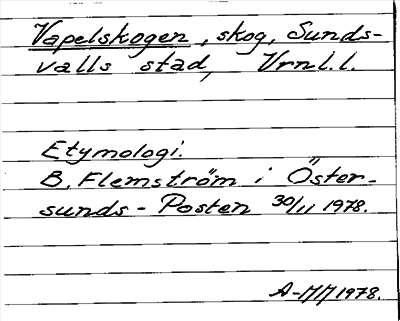 Vapelskogen, skog, Sunds-
valls stad, Vrnl.l.
Etymologi.
B. Flemström i Öster-
sunds-Posten 30/11 1978.
1978.